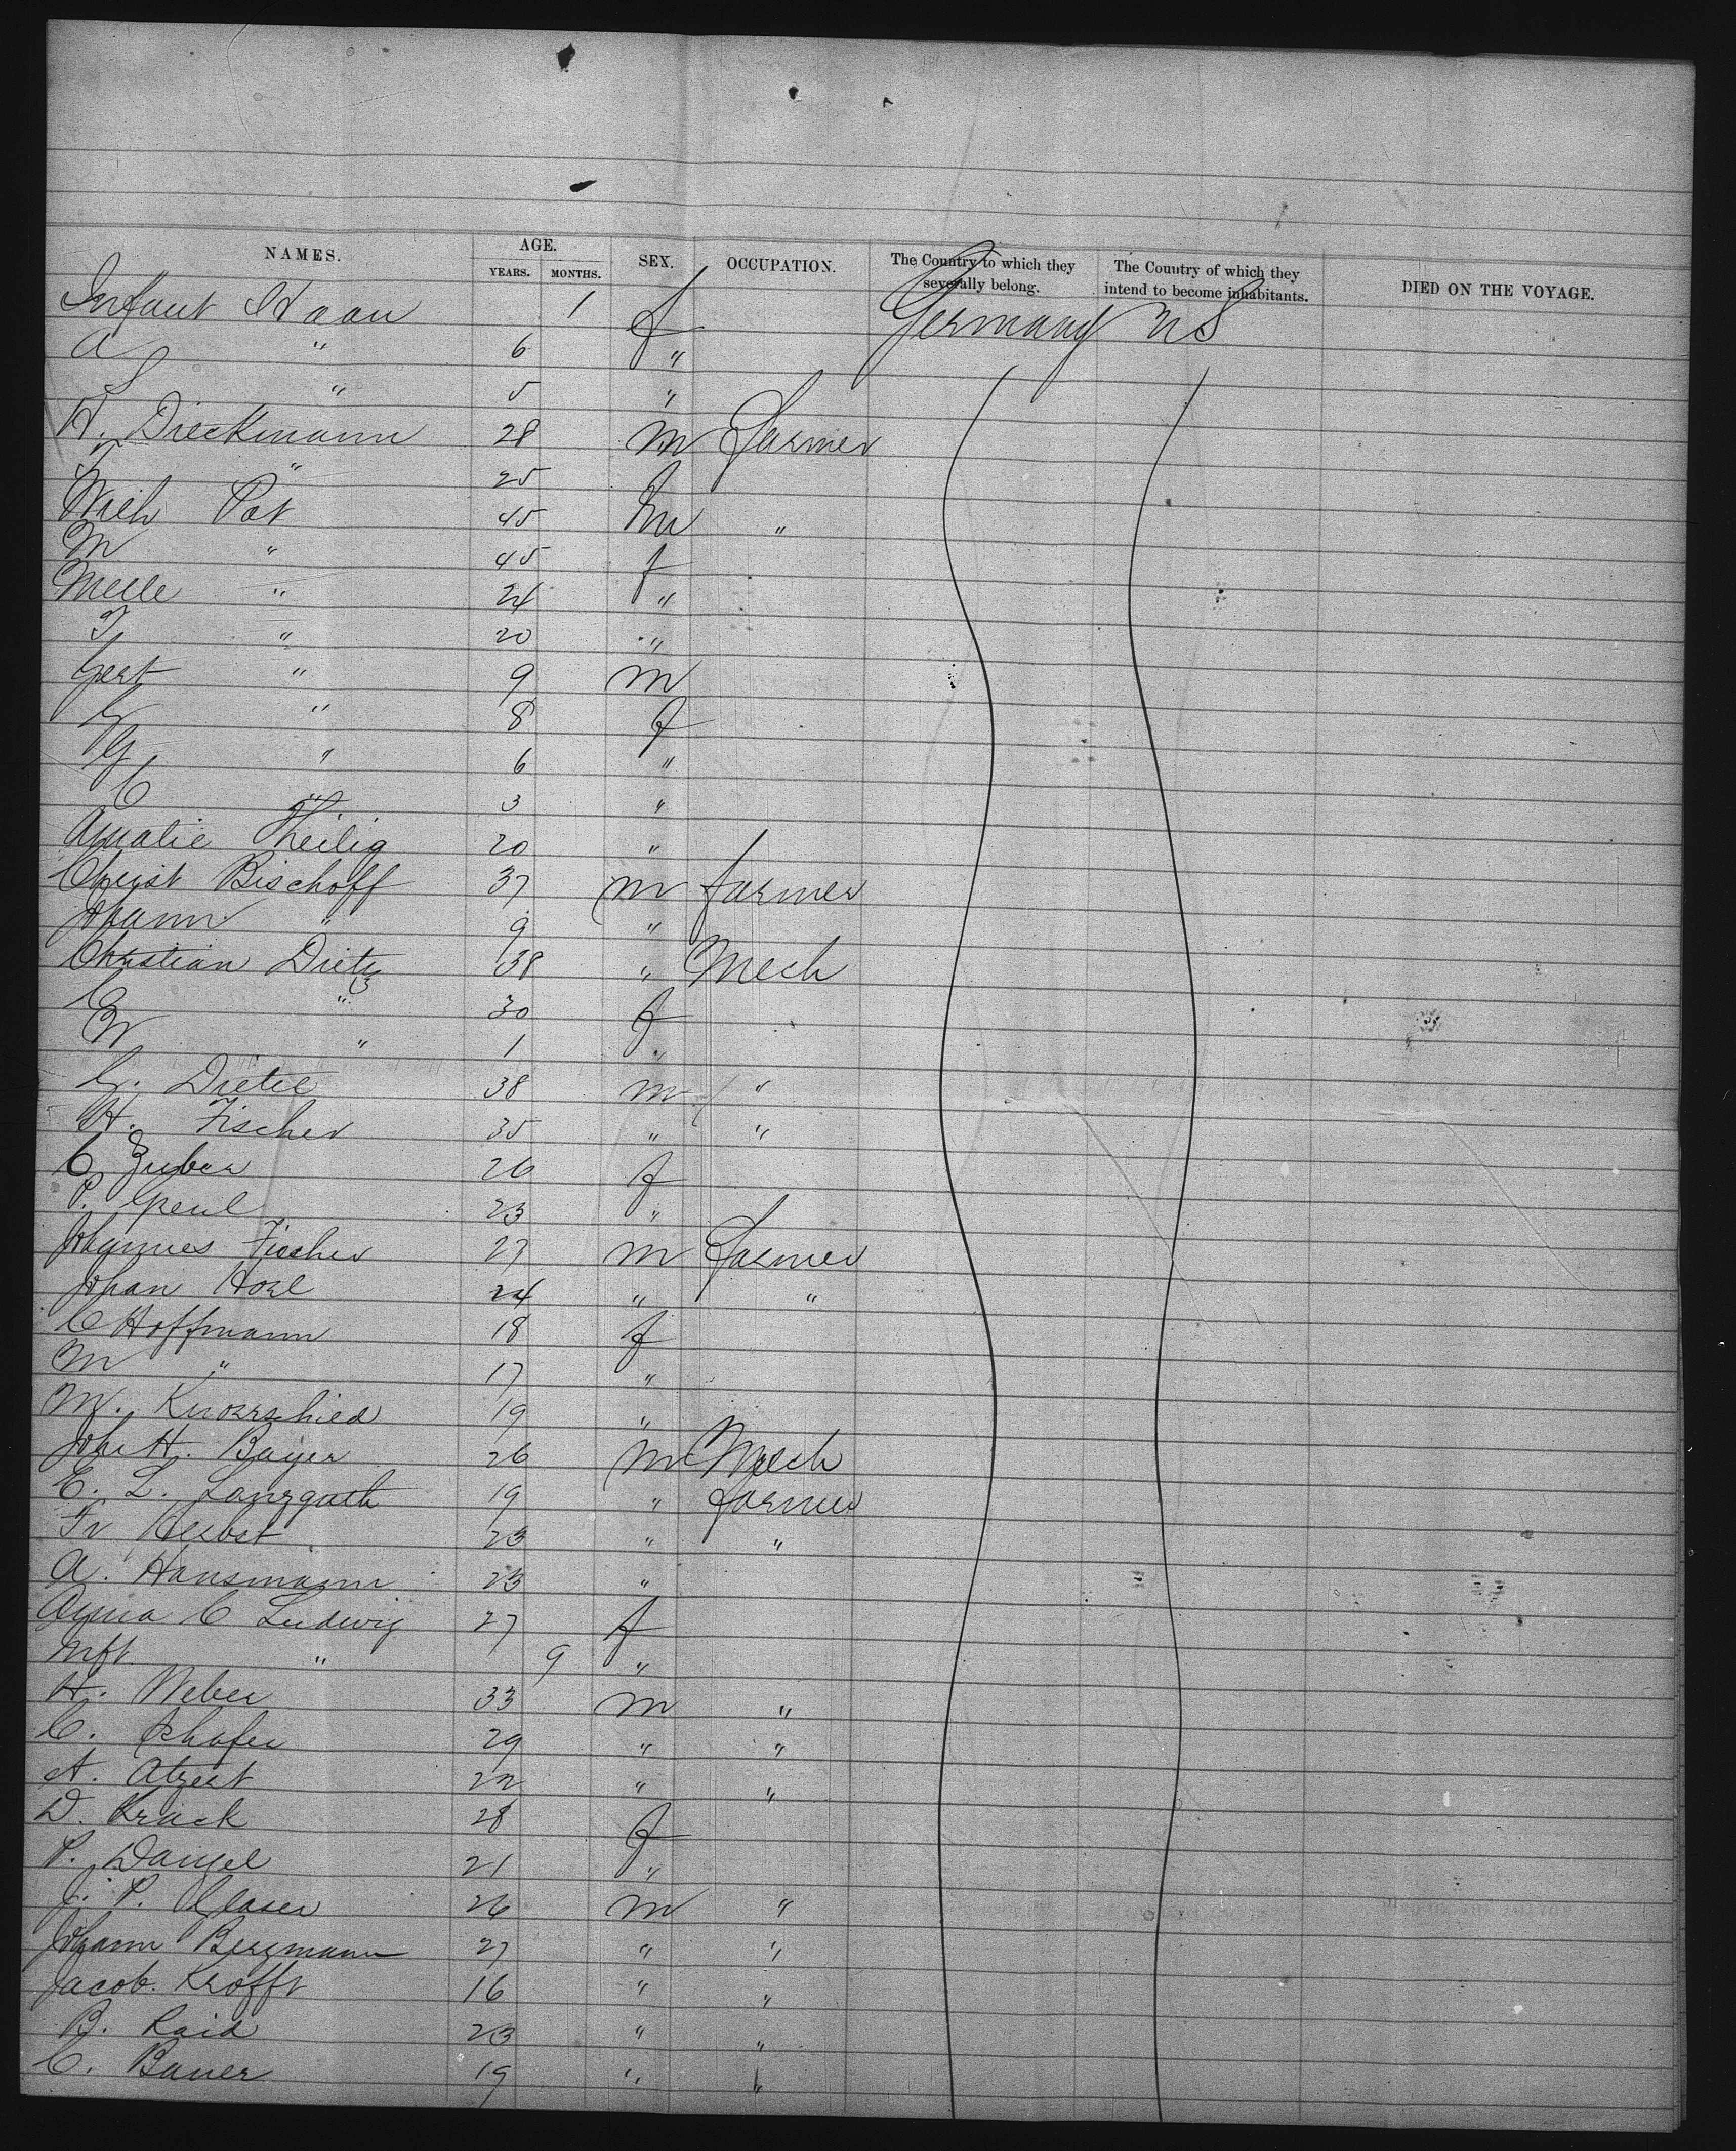 NAMES. AGE. YEARS. MONTHS. SEX. OCCUPATION. The Country to which they severally belong. The Country of which they intend to become inhabitants. DIED ON THE VOYAGE.
Infant Haan 1 f Germany US
A " 6 "
S " 5 "
H. Dieckmann 28 m Farmer
" 25
Wilh Pot 45 m "
M " 45 f
Melle " 24 "
T " 20 "
Gert " 9 m
G " 8 f
G " 6 "
C " 3 "
Amalie Theilig 20 "
Christ Bischoff 37 m farmer
Johann " 9 "
Christian Dietz 38 " Mech
E " 30 f
W " 1 "
G. Dietel 38 m "
H. Fischer 35 " "
C Zuber 26 f
P. Greul 23 "
Johannes Fischer 27 m Farmer
Johan Hosl 24 " "
C Hoffmann 18 f
M " 17 "
M. 19 "
Joh H. Bayer 26 m Mech
E. L. Langguth 19 " farmer
Fr Herbst 23 " "
A. Hausmann 23 "
Anna C Ludwig 27 f
Inft " 9 "
H. Weber 33 m "
C. Schafer 29 " "
A. Atzert 22 " "
D. Krack 28 f
P. Daniel 21 "
J. P. Glaser 26 m "
Johann Bergmann 27 " "
Jacob Krofft 16 " "
B. Raid 23 " "
C. Bauer 19 " "